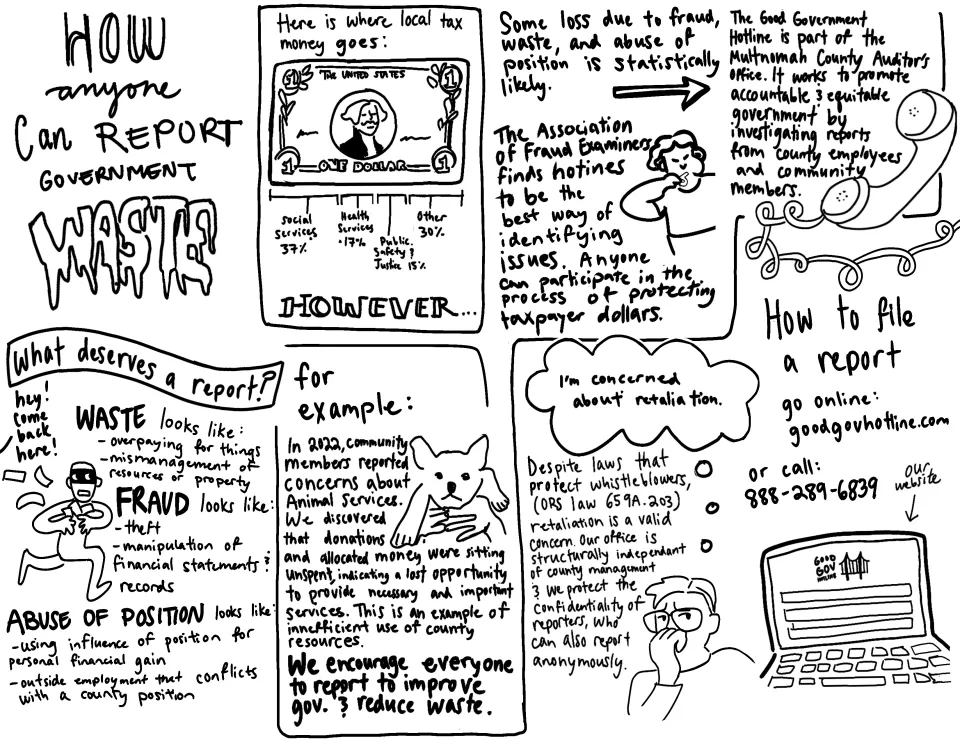 HOW
anyone
Can REPORT
GOVERNMENT
WASTE
Here is where local tax
money goes:
THE UNITED STATES
1
1
1
1
ONE DOLLAR
Social
Services
37%
Health
Services
·17%
Public
Safety &
Justice 15%
Other
30%
HOWEVER...
Some loss due to fraud,
waste, and abuse of
position is statistically
likely.
The Association
of Fraud Examiners
finds hotlines
to be the
best way of
identifying
issues. Anyone
can participate in the
process of protecting
taxpayer dollars.
The Good Government
Hotline is part of the
Multnomah County Auditor's
Office. It works to promote
accountable & equitable
government by
investigating reports
from county employees
and community
members.
What deserves a report?
hey!
come
back
here!
WASTE looks like:
- overpaying for things
- mismanagement of
resources or property
FRAUD looks like:
- theft
- manipulation of
financial statements &
records
ABUSE OF POSITION looks like:
- using influence of position for
personal financial gain
- outside employment that conflicts
with a county position
for
example:
In 2022, community
members reported
concerns about
Animal Services.
We discovered
that donations
and allocated money were sitting
unspent, indicating a lost opportunity
to provide necessary and important
services. This is an example of
innefficient use of county
resources.
We encourage everyone
to report to improve
gov. & reduce waste.
I'm concerned
about retaliation.
Despite laws that
protect whistleblowers,
(ORS law 659A.203)
retaliation is a valid
concern. Our office is
structurally independant
of county management
& we protect the
confidentiality of
reporters, who
can also report
anonymously.
How to file
a report
go online:
goodgovhotline.com
or call:
888-289-6839
our
website
GOOD
GOV
HOTLINE